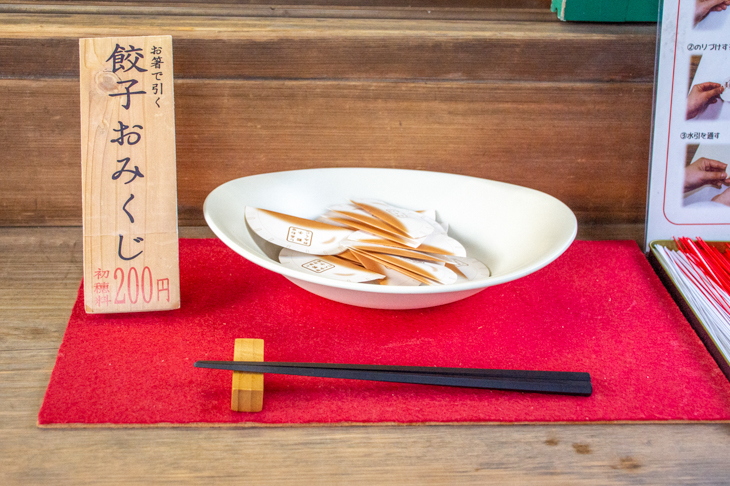 お箸で引く
餃子おみくじ
初穂料
200円
②のりづけす
③水引を通す